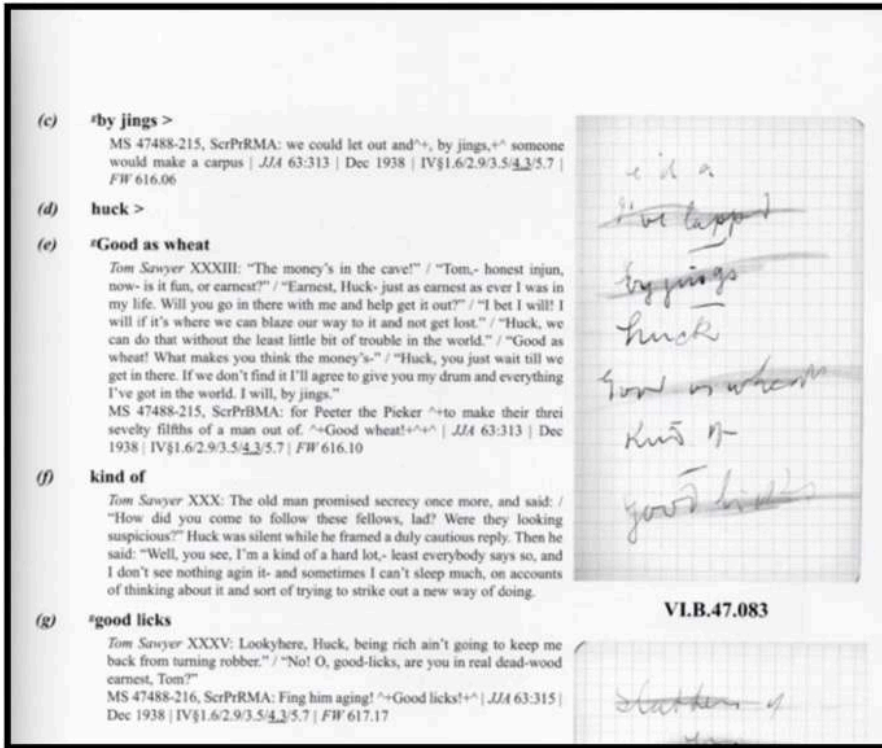 (c) #by jings >
MS 47488-215, ScrPrRMA: we could let out and^+, by jings,+^ someone
would make a carpus | JJA 63:313 | Dec 1938 | IV§1.6/2.9/3.5/4.3/5.7 |
FW 616.06
(d) huck >
(e) #Good as wheat
Tom Sawyer XXXIII: “The money’s in the cave!” / “Tom,- honest injun,
now- is it fun, or earnest?” / “Earnest, Huck- just as earnest as ever I was in
my life. Will you go in there with me and help get it out?” / “I bet I will! I
will if it’s where we can blaze our way to it and not get lost.” / “Huck, we
can do that without the least little bit of trouble in the world.” / “Good as
wheat! What makes you think the money’s-” / “Huck, you just wait till we
get in there. If we don’t find it I’ll agree to give you my drum and everything
I’ve got in the world. I will, by jings.”
MS 47488-215, ScrPrBMA: for Peeter the Picker ^+to make their threi
sevelty filfths of a man out of. ^+Good wheat!+^+^ | JJA 63:313 | Dec
1938 | IV§1.6/2.9/3.5/4.3/5.7 | FW 616.10
(f) kind of
Tom Sawyer XXX: The old man promised secrecy once more, and said: /
“How did you come to follow these fellows, lad? Were they looking
suspicious?” Huck was silent while he framed a duly cautious reply. Then he
said: “Well, you see, I’m a kind of a hard lot,- least everybody says so, and
I don’t see nothing agin it- and sometimes I can’t sleep much, on accounts
of thinking about it and sort of trying to strike out a new way of doing.
(g) #good licks
Tom Sawyer XXXV: Lookyhere, Huck, being rich ain’t going to keep me
back from turning robber.” / “No! O, good-licks, are you in real dead-wood
earnest, Tom?”
MS 47488-216, ScrPrRMA: Fing him aging! ^+Good licks!+^ | JJA 63:315 |
Dec 1938 | IV§1.6/2.9/3.5/4.3/5.7 | FW 617.17
I've lapped
by jings
huck
Good as wheat
Kind of
good licks
VI.B.47.083
slathers of